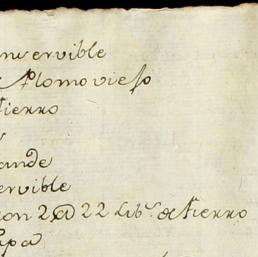 inservible
Plomo viejo
fierro
ande
ervible
con 2@ 22 Lib.s de fierro
apa